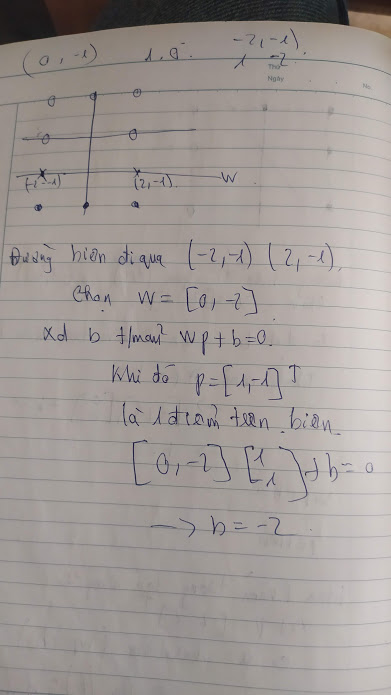 (0, -1) 1,0. -2, -1).
1 -2
Thứ
Ngày
No.
(-2, -1) (2, -1). W
Đường biên đi qua (-2, -1) (2, -1),
Chọn W = [0, -2]
Xđ b t/mãn Wp + b = 0.
Khi đó p = [1, -1]ᵀ
là 1 điểm trên biên
[0, -2] [1 1] + b = 0
→ b = -2